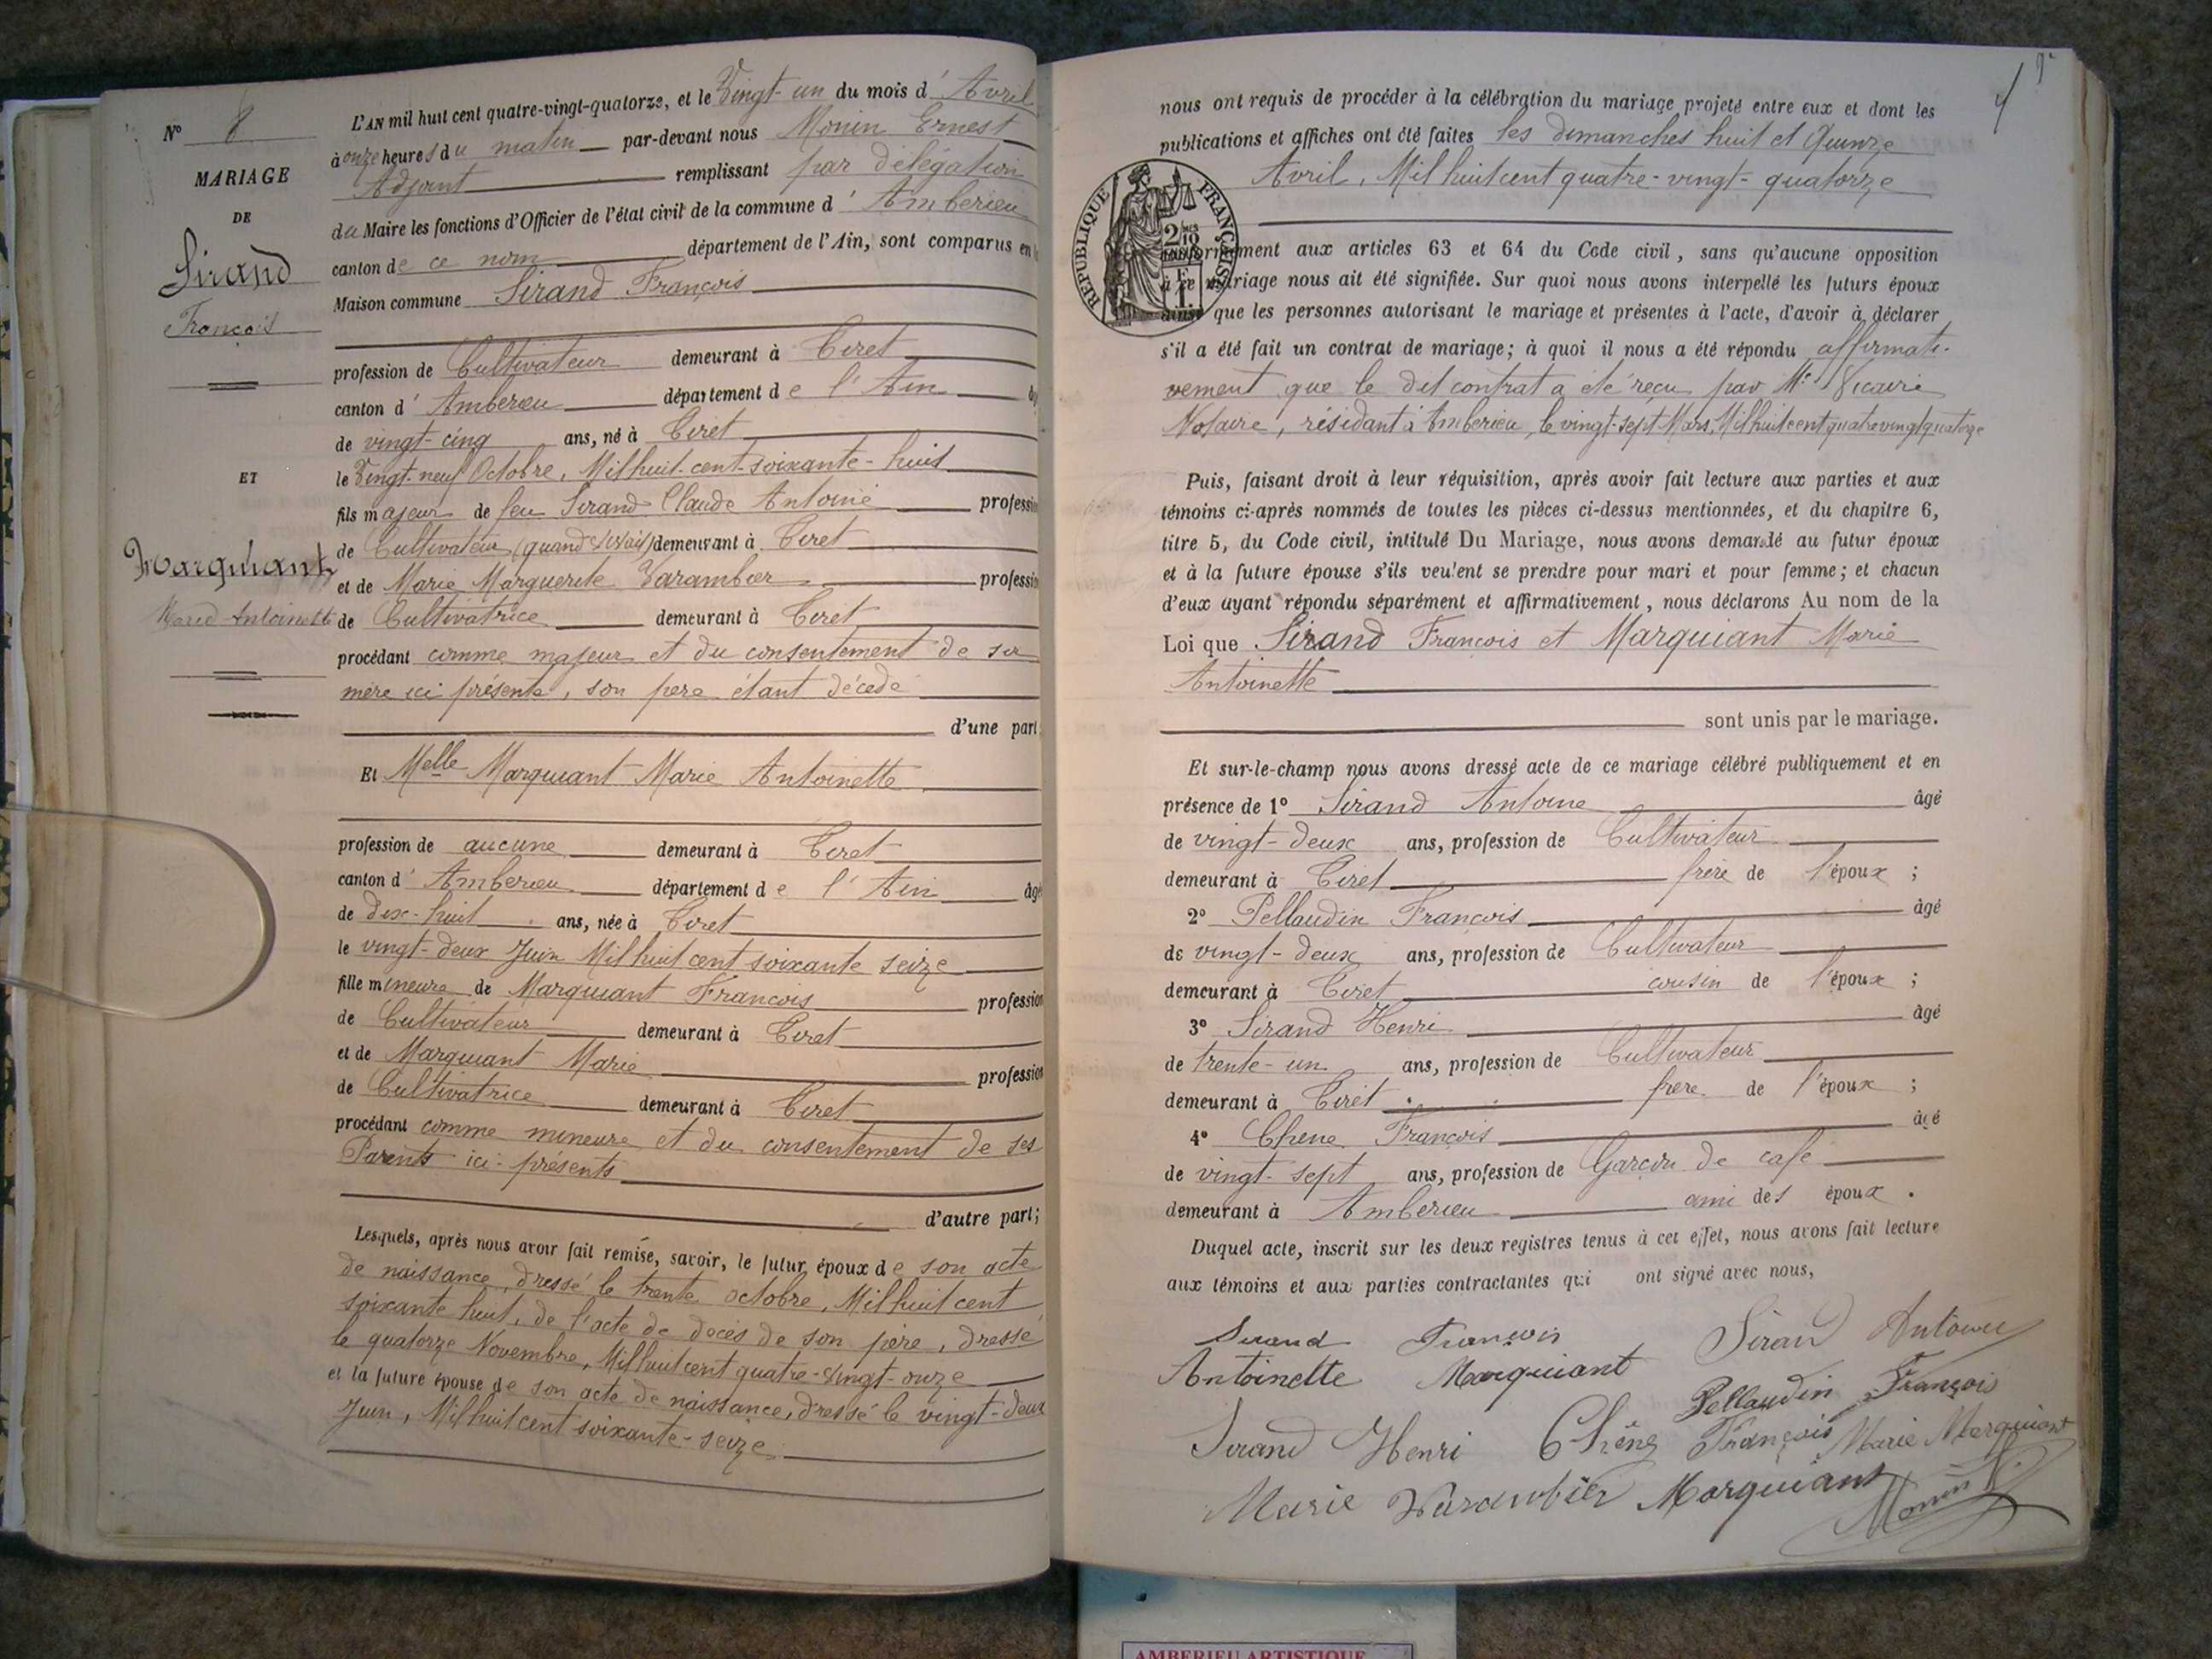 N° 8
MARIAGE
DE
Sirand
François
ET
Marguiant
Marie Antoinette
L'AN mil huit cent quatre-vingt-quatorze, et le Vingt-un du mois d'Avril
à onze heures du matin par-devant nous Monin Ernest
Adjoint remplissant par délégation
du Maire les fonctions d'Officier de l'état civil de la commune d'Amberieu
canton de ce nom département de l'Ain, sont comparus en la
Maison commune Sirand François
profession de Cultivateur demeurant à Tiret
canton d'Amberieu département de l'Ain
de vingt-cinq ans, né à Tiret
le Vingt-neuf Octobre, Mil huit-cent-soixante-huit
fils majeur de feu Sirand Claude Antoine profession
de Cultivateur (quand vivait) demeurant à Tiret
et de Marie Marguerite Varambier profession
de Cultivatrice demeurant à Tiret
procédant comme majeur et du consentement de sa
mère ici présente, son père étant décédé
d'une part;
Et Melle Marguiant Marie Antoinette
profession de aucune demeurant à Tiret
canton d'Amberieu département de l'Ain âgé
de dix-huit ans, née à Tiret
le vingt-deux Juin Mil huit cent soixante seize
fille mineure de Marguiant François profession
de Cultivateur demeurant à Tiret
et de Marguiant Marie profession
de Cultivatrice demeurant à Tiret
procédant comme mineure et du consentement de ses
Parents ici-présents
d'autre part;
Lesquels, après nous avoir fait remise, savoir, le futur époux de son acte
de naissance, dressé le trente octobre, Mil huit cent
soixante huit, de l'acte de décès de son père, dressé
le quatorze Novembre, Mil huit cent quatre-vingt-onze
et la future épouse de son acte de naissance, dressé le vingt-deux
Juin, Mil huit cent soixante-seize
nous ont requis de procéder à la célébration du mariage projeté entre eux et dont les
publications et affiches ont été faites les dimanches huit et Quinze
Avril, Mil huit cent quatre-vingt-quatorze
REPUBLIQUE FRANÇAISE
conformément aux articles 63 et 64 du Code civil, sans qu'aucune opposition
à ce mariage nous ait été signifiée. Sur quoi nous avons interpellé les futurs époux
ainsi que les personnes autorisant le mariage et présentes à l'acte, d'avoir à déclarer
s'il a été fait un contrat de mariage; à quoi il nous a été répondu affirmati-
vement que le dit contrat a été reçu par Me Vicaire
Notaire, résidant à Amberieu, le vingt-sept Mars, Mil huit cent quatre vingt quatorze
Puis, faisant droit à leur réquisition, après avoir fait lecture aux parties et aux
témoins ci-après nommés de toutes les pièces ci-dessus mentionnées, et du chapitre 6,
titre 5, du Code civil, intitulé Du Mariage, nous avons demandé au futur époux
et à la future épouse s'ils veulent se prendre pour mari et pour femme; et chacun
d'eux ayant répondu séparément et affirmativement, nous déclarons Au nom de la
Loi que Sirand François et Marguiant Marie
Antoinette
sont unis par le mariage.
Et sur-le-champ nous avons dressé acte de ce mariage célébré publiquement et en
présence de 1° Sirand Antoine âgé
de vingt-deux ans, profession de Cultivateur
demeurant à Tiret frère de l'époux;
2° Pellaudin François âgé
de vingt-deux ans, profession de Cultivateur
demeurant à Tiret cousin de l'époux;
3° Sirand Henri âgé
de trente-un ans, profession de Cultivateur
demeurant à Tiret frère de l'époux;
4° Chêne François âgé
de vingt-sept ans, profession de Garçon de café
demeurant à Amberieu ami des époux.
Duquel acte, inscrit sur les deux registres tenus à cet effet, nous avons fait lecture
aux témoins et aux parties contractantes qui ont signé avec nous,
Sirand François Siran Antoine
Antoinette Marguiant Pellaudin François
Sirand Henri Chêne François Marie Marguiant
Marie Varambier Marguiant Monin E.
AMBERIEU ARTISTIQUE